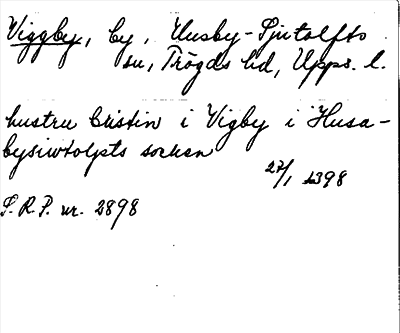 Viggby, by, Husby-Sjutolfts
sn, Trögds hd, Upps. l.
hustru Cristin i Vigby i Husa-
bysiwtolpts socken
27/1 1398
S.R.P. nr. 2898